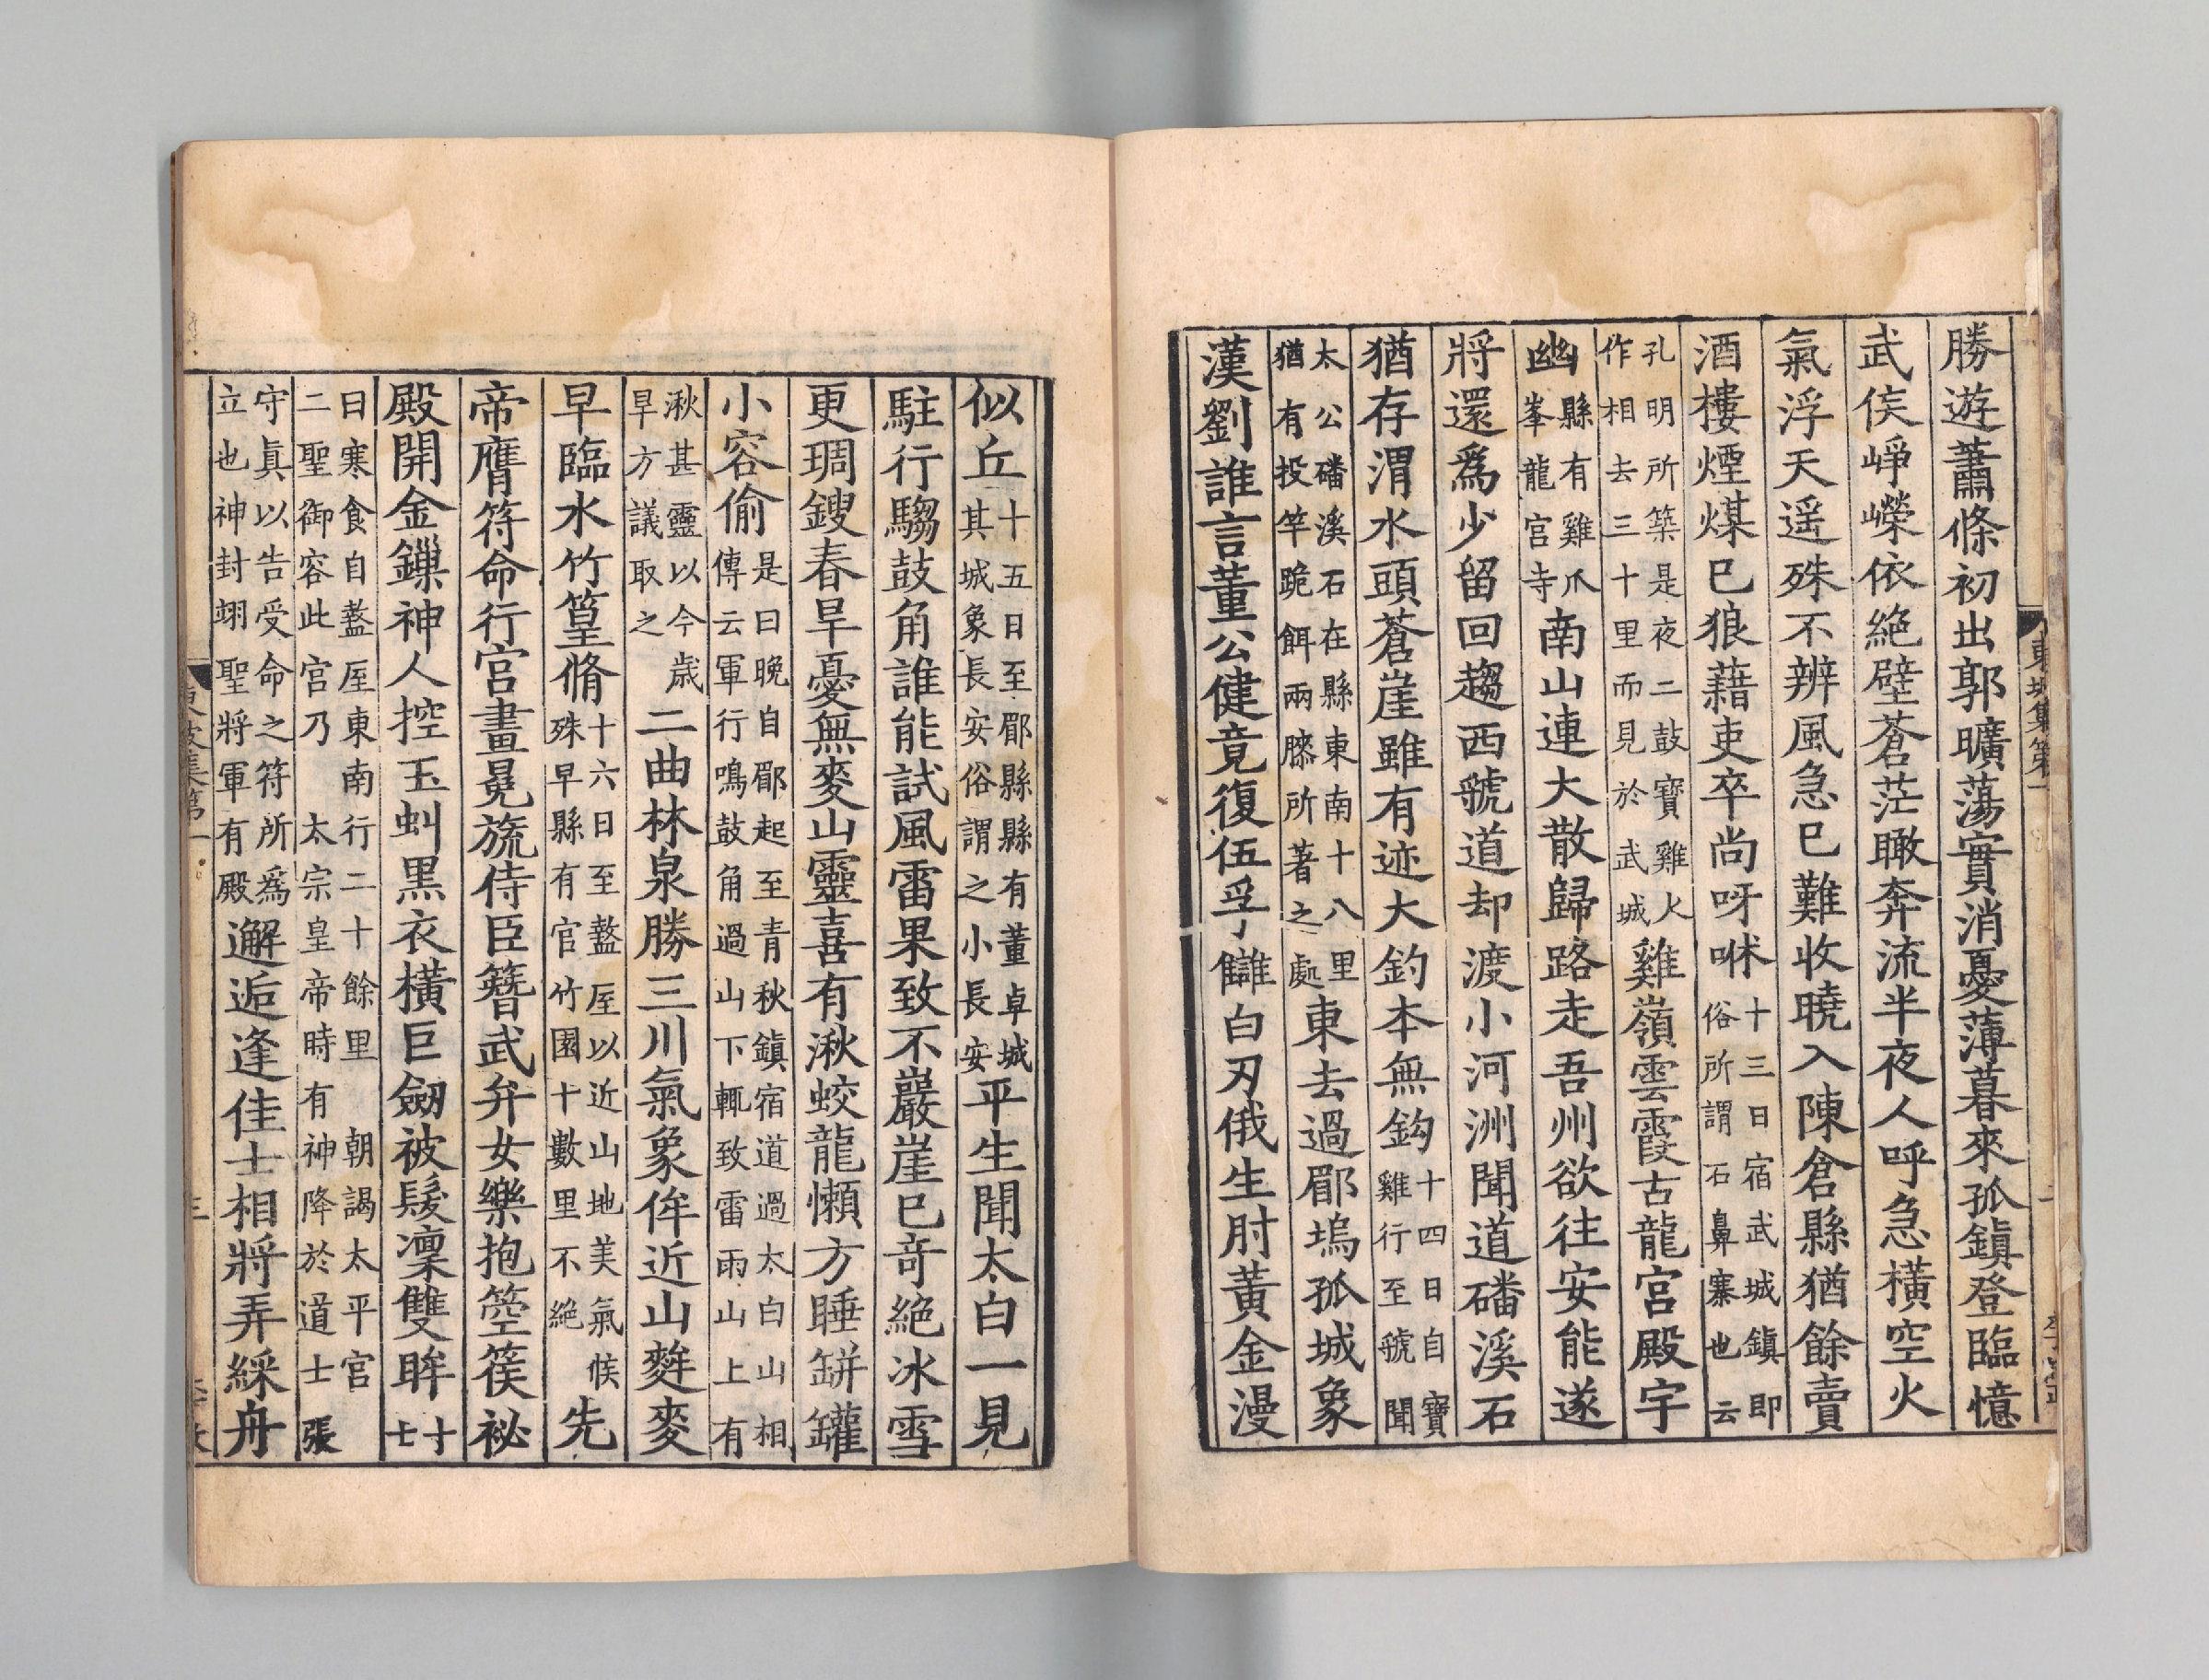 勝遊蕭條初出郭曠蕩實消憂薄暮來孤鎭登臨憶
武侯崢嶸依絶壁蒼茫瞰奔流半夜人呼急橫空火
氣浮天遥殊不辨風急已難收曉入陳倉縣猶餘賣
酒樓煙煤已狼藉吏卒尚呀咻十三日宿武城鎮即俗所謂石鼻寨也云
孔明所築是夜二鼓寶雞火作相去三十里而見於武城雞嶺雲霞古龍宮殿宇
幽縣有雞爪峯龍宮寺南山連大散歸路走吾州欲往安能遂
將還爲少留回趨西虢道却渡小河洲聞道磻溪石
猶存渭水頭蒼崖雖有迹大釣本無鈎十四日自寶雞行至虢聞
太公磻溪石在縣東南十八里猶有投竿跪餌兩膝所著之處東去過郿塢孤城象
漢劉誰言董公健竟復伍孚讎白刃俄生肘黃金漫
似丘十五日至郿縣縣有董卓城其城象長安俗謂之小長安平生聞太白一見
駐行騶鼓角誰能試風雷果致不巖崖已奇絶冰雪
更琱鎪春旱憂無麥山靈喜有湫蛟龍懶方睡缾罐
小容偷是日晚自郿起至青秋鎮宿道過太白山相傳云軍行鳴鼓角過山下輒致雷雨山上有
湫甚靈以今歲旱方議取之二曲林泉勝三川氣象侔近山麰麥
早臨水竹篁脩十六日至盩厔以近山地美氣候殊早縣有官竹園十數里不絶先
帝膺符命行宮畫冕旒侍臣簪武弁女樂抱箜篌祕
殿開金鏁神人控玉虯黑衣橫巨劒被髮凜雙眸十七
日寒食自盩厔東南行二十餘里朝謁太平宮二聖御容此宮乃太宗皇帝時有神降於道士張
守眞以告受命之符所爲立也神封翊聖將軍有殿邂逅逢佳士相將弄綵舟
東坡集第一
三